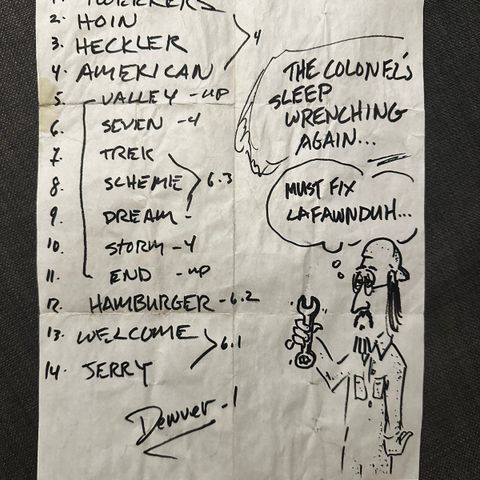 1. TWERKERS
2. HOIN
3. HECKLER
4. AMERICAN
4
5. VALLEY - UP
6. SEVEN - 4
7. TREK
8. SCHEME
9. DREAM -
6.3
10. STORM - 4
11. END - UP
12. HAMBURGER - 6.2
13. WELCOME
14. JERRY
6.1
Denver - 1
THE COLONEL'S
SLEEP
WRENCHING
AGAIN...
MUST FIX
LAFAWNDUH...